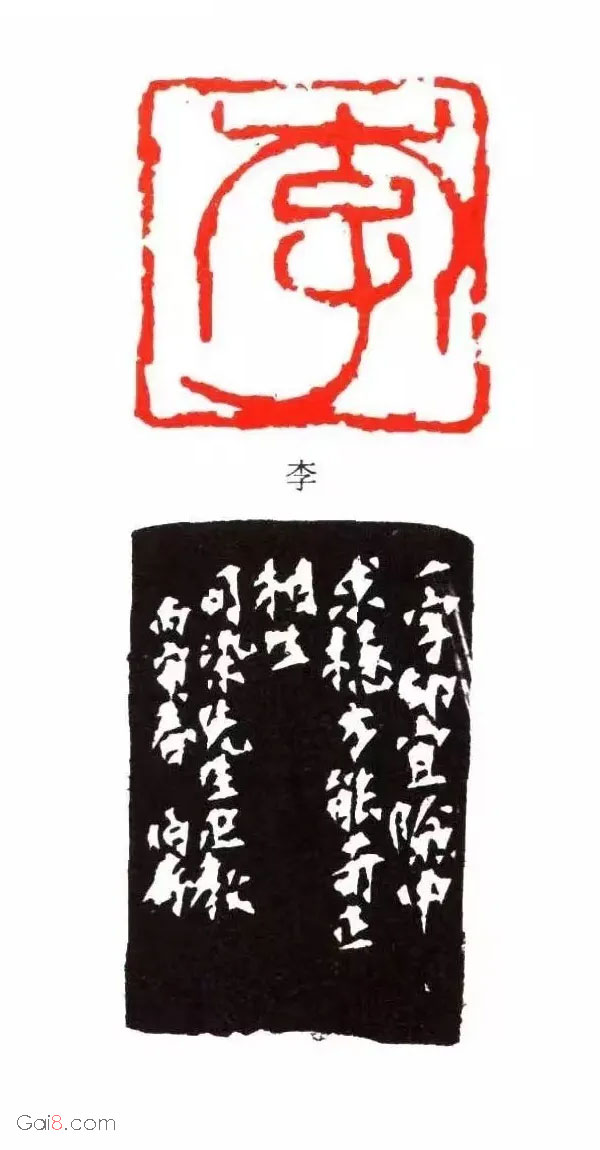 李
李
一字印宜險中
求穩方能奇正
相生
可染先生教
丙寅春
Gai8.com